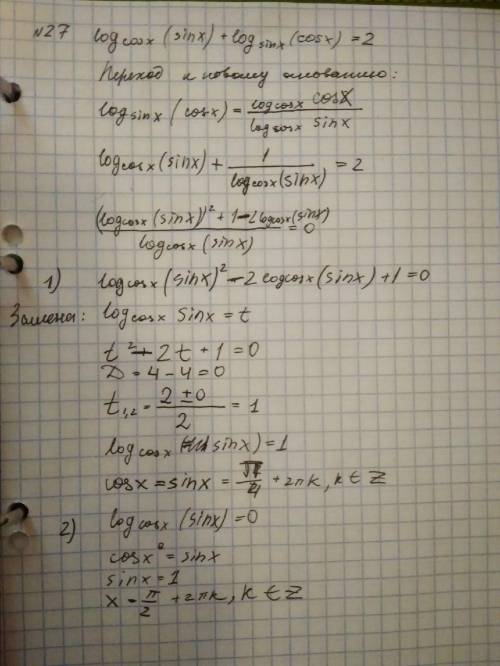 №27 log_cosx (sinx) + log_sinx (cosx) = 2
Переход к новому основанию:
log_sinx (cosx) = log_cosx cosx / log_cosx sinx
log_cosx (sinx) + 1 / log_cosx (sinx) = 2
((log_cosx (sinx))² + 1 - 2 log_cosx (sinx)) / log_cosx (sinx) = 0
1) log_cosx (sinx)² - 2 log_cosx (sinx) + 1 = 0
Замена: log_cosx sinx = t
t² - 2t + 1 = 0
D = 4 - 4 = 0
t₁,₂ = (2 ± 0) / 2 = 1
log_cosx (sinx) = 1
cosx = sinx = π/4 + 2πk, k ∈ Z
2) log_cosx (sinx) = 0
cosx⁰ = sinx
sinx = 1
x = π/2 + 2πk, k ∈ Z